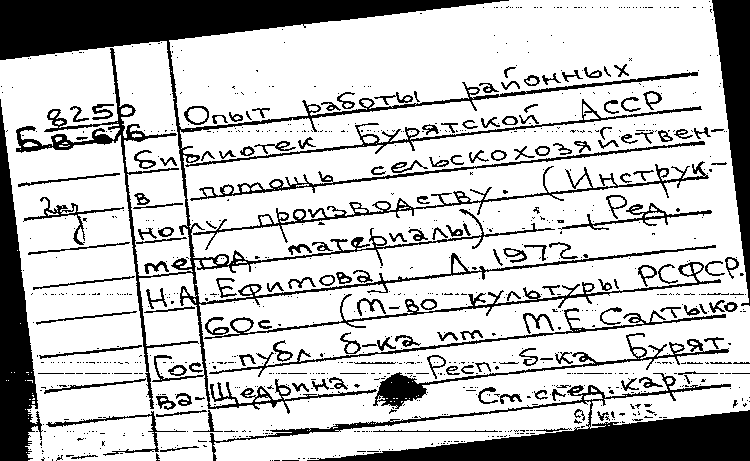 8250
Б В-676
Опыт работы районных
библиотек Бурятской АССР
2 экз.
в помощь сельскохозяйствен-
ному производству. (Инструк.-
метод. материалы). Ред.
Н.А. Ефимова]. Л., 1972.
60с. (М-во культуры РСФСР.
Гос. публ. б-ка им. М.Е. Салтыко-
ва-Щедрина. Респ. б-ка Бурят.
См. след. карт.